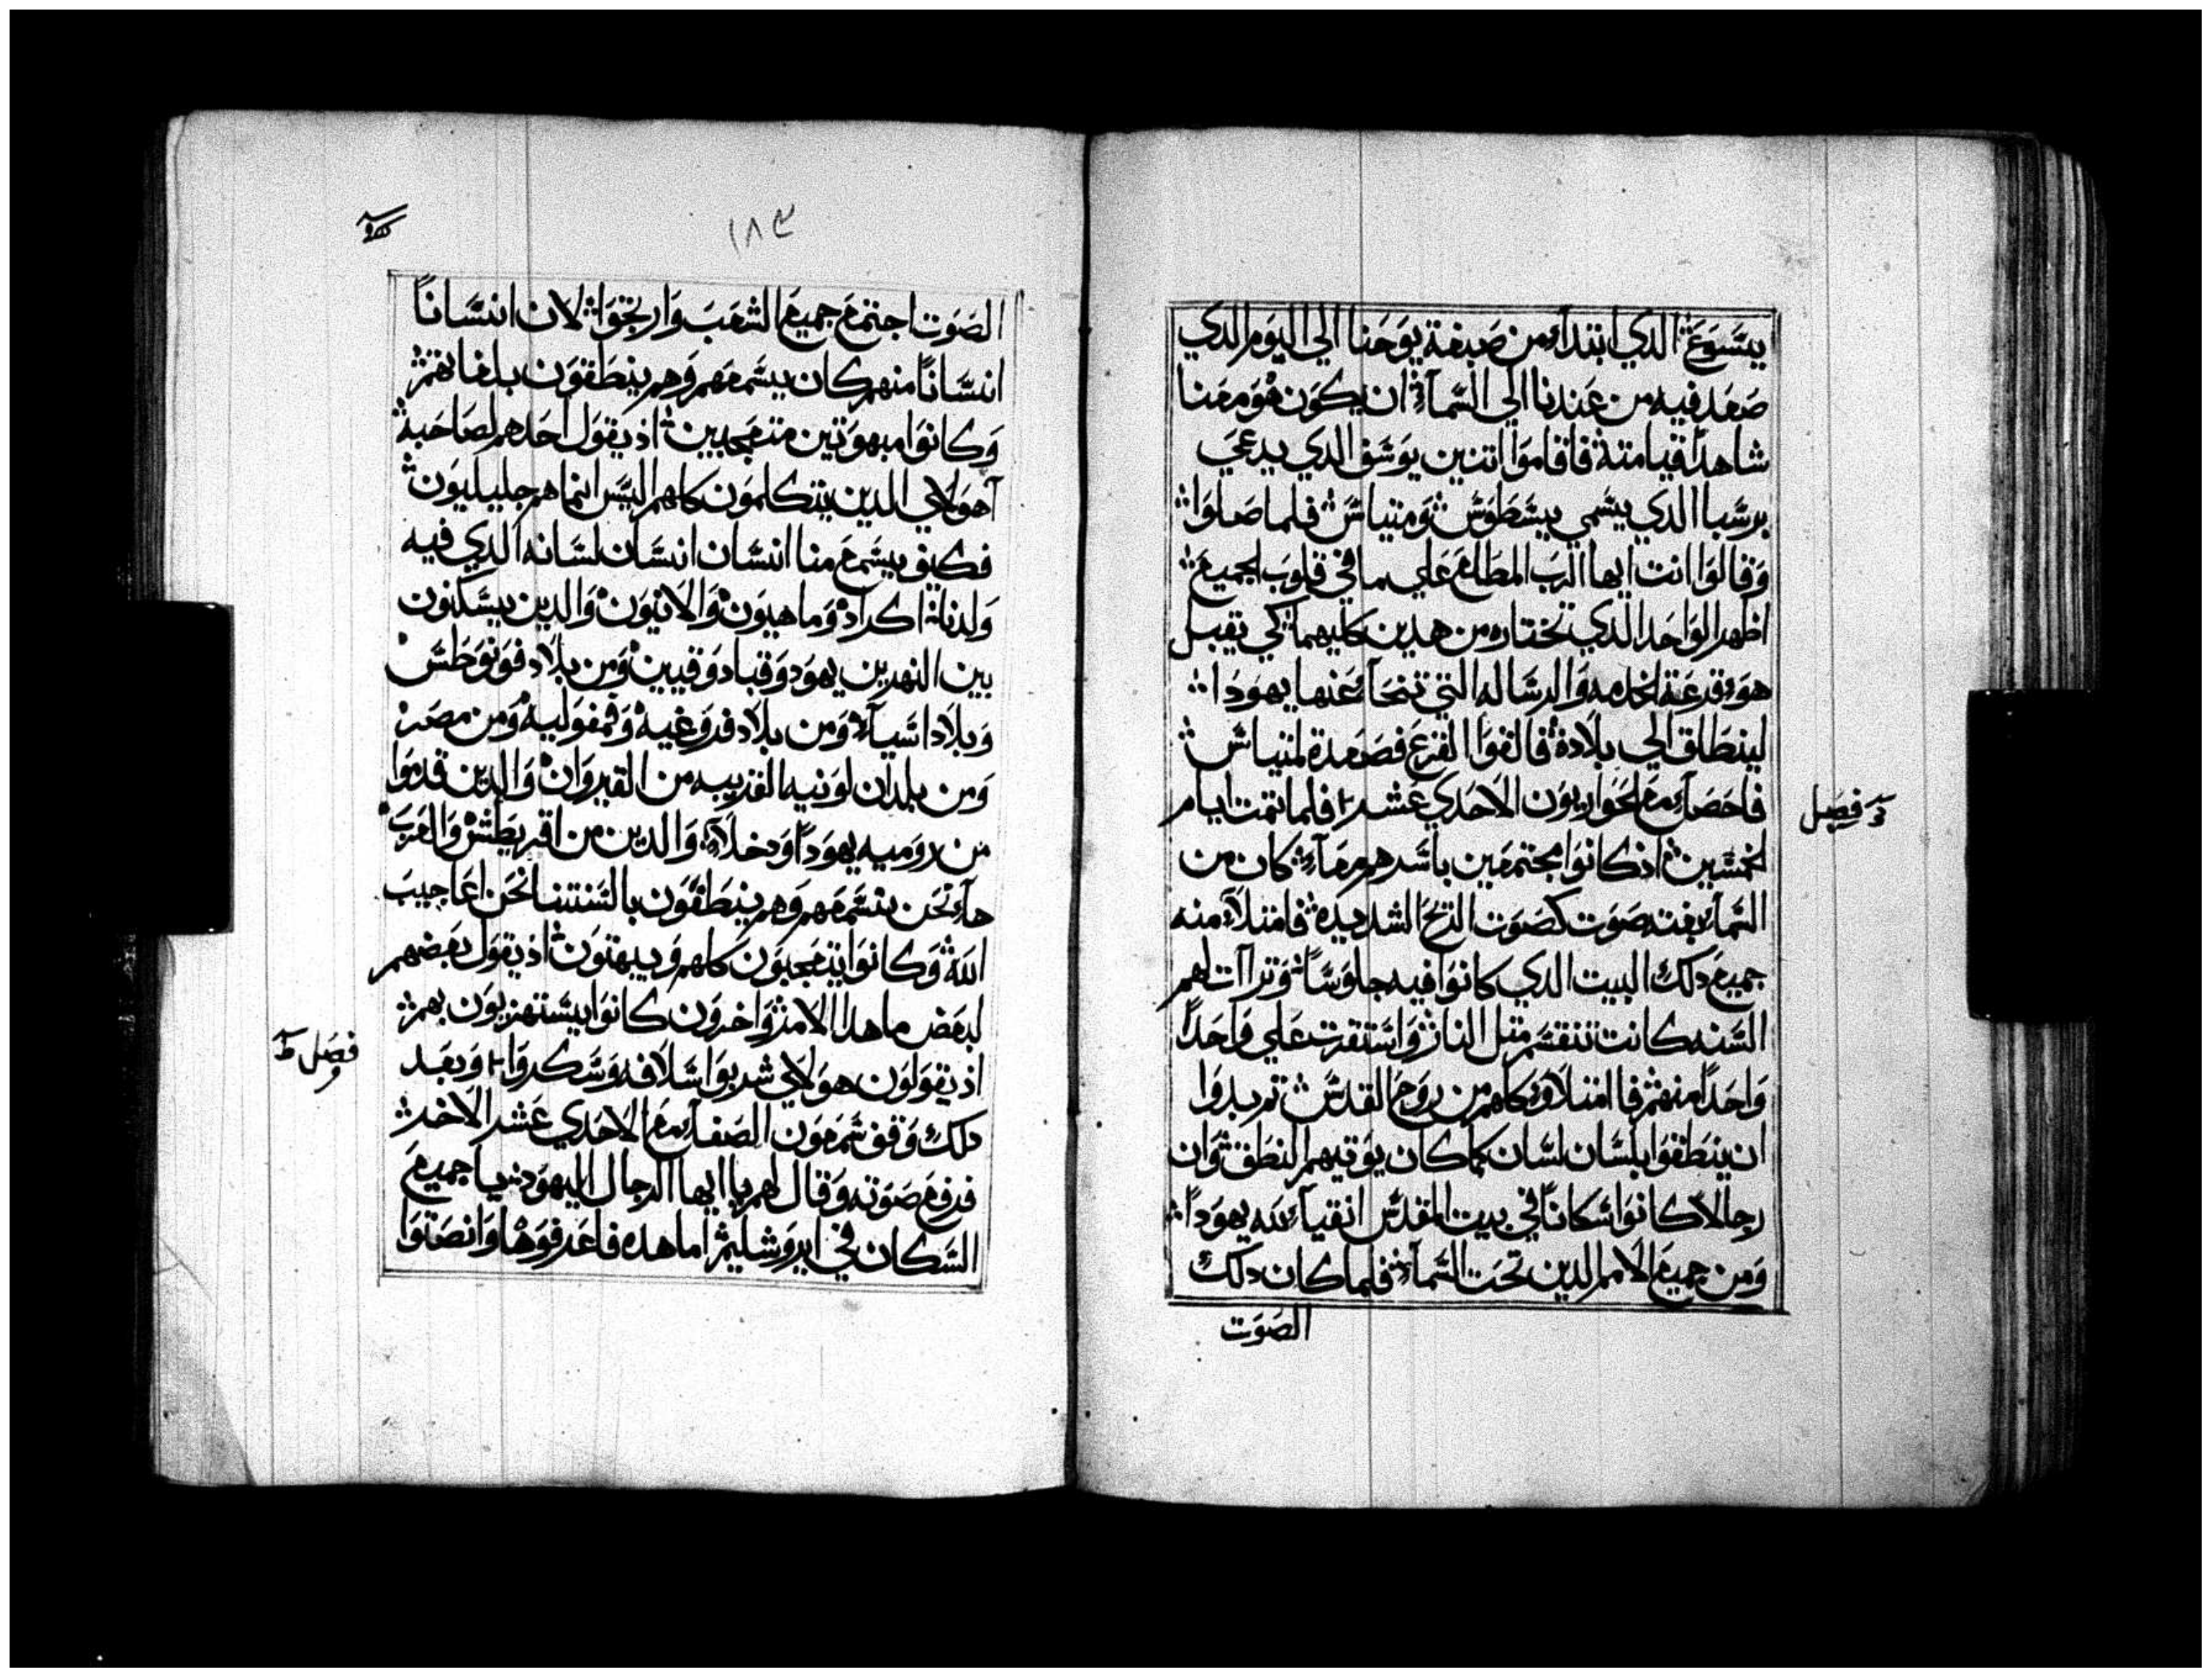 يسوع الدي ابتدا من صبغة يوحنا الي اليوم الدي
صعد فيه من عندنا الي السماء ان يكون هو معنا
شاهدا قيامته فاقاموا اتنين يوسف الدي يدعي
برسبا الدي يسمي يسطوس ومتياس فلما صلوا
وقالوا انت ايها الرب المطلع علي ما في قلوب الجميع
اظهر الواحد الدي تختاره من هدين كليهما كي يقبل
هو قرعة الخدمه والرساله التي تنحا عنها يهودا
لينطلق الي بلاده فالقوا القرع فصعدة لمتياس
فاحصاء مع الحواريون الاحدي عشر فلما تمت ايام
فصل
الخمسين اذ كانوا مجتمعين باسرهم معاء كان من
السماء بغته صوت كصوت الريح الشديده فامتلاء منه
جميع دلك البيت الدي كانوا فيه جلوسا وتراات لهم
السنه كانت تنقسم متل النار واستقرت علي واحدا
واحدا منهم فاامتلاو كلهم من روح القدس تم بدوا
ان ينطقوا بلسان لسان كما كان يوتيهم النطق وان
رجالا كانوا سكانا في بيت المقدس اتقياء لله يهودا
ومن جميع الامم الدين تحت السماء فلما كان دلك
الصوت
١٨٣
الصوت اجتمع جميع الشعب وارتجوا لان انسانا
انسانا منهم كان يسمعهم وهم ينطقون بلغاتهم
وكانوا مبهوتين متعجبين اذ يقول احدهم لصاحبه
آهولاي الدين يتكلمون كلهم اليس انما هم جليليون
فكيف يسمع منا انسان انسان لسانه الدي فيه
ولدنا اكراد وماهيون والانيون والدين يسكنون
بين النهرين يهود وقبادوقيين ومن بلاد فونوطس
وبلاد اسياء ومن بلاد فروغيه وفمفوليه ومن مصر
ومن بلدان لونيه القريبه من القيروان والدين قدموا
من روميه يهودا ودخلاء والدين من اقريطش والعرب
هاء نحن نسمعهم وهم ينطقون بالسنتنا نحن اعاجيب
الله وكانوا يتعجبون كلهم ويبهتون اذ يقول بعضهم
لبعض ما هدا الامر واخرون كانوا يستهزيون بهم
اذ يقولون هولاي شربوا سلافه وسكروا وبعد
فصل
دلك وقف شمعون الصفاء مع الاحدي عشر الاخر
فرفع صوته وقال لهم يا ايها الرجال اليهود يا جميع
السكان في ايروشليم اما هده فاعرفوها وانصتوا